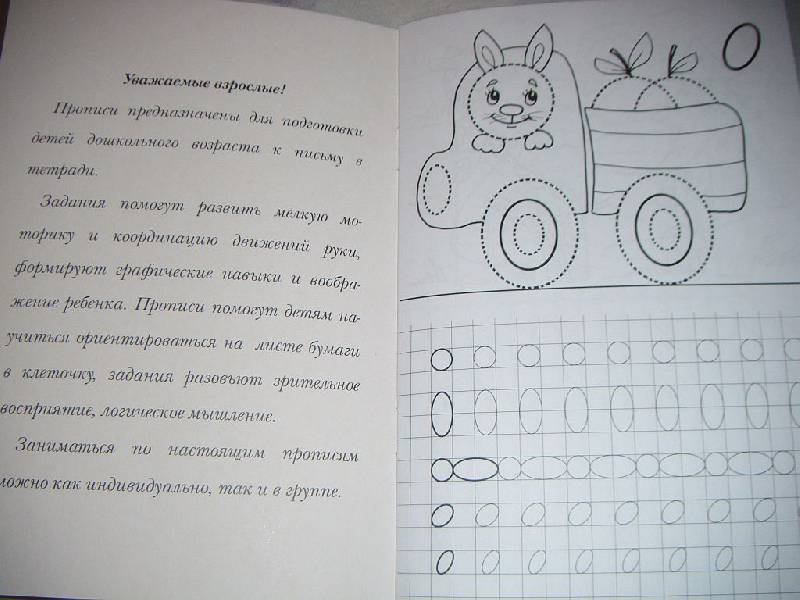 Уважаемые взрослые!
Прописи предназначены для подготовки
детей дошкольного возраста к письму в
тетради.
Задания помогут развить мелкую мо-
торику и координацию движений руки,
формируют графические навыки и вообра-
жение ребенка. Прописи помогут детям на-
учиться ориентироваться на листе бумаги
в клеточку, задания разовьют зрительное
восприятие, логическое мышление.
Заниматься по настоящим прописям
можно как индивидуально, так и в группе.